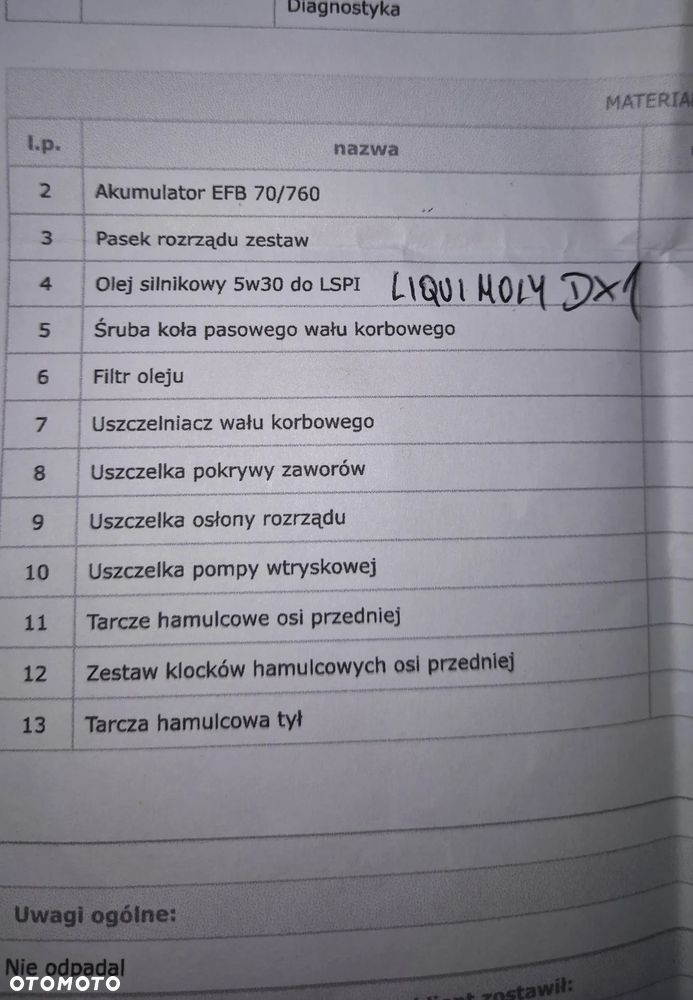 Diagnostyka
MATERIA
l.p. nazwa
2 Akumulator EFB 70/760
3 Pasek rozrządu zestaw
4 Olej silnikowy 5w30 do LSPI LIQUI MOLY DX1
5 Śruba koła pasowego wału korbowego
6 Filtr oleju
7 Uszczelniacz wału korbowego
8 Uszczelka pokrywy zaworów
9 Uszczelka osłony rozrządu
10 Uszczelka pompy wtryskowej
11 Tarcze hamulcowe osi przedniej
12 Zestaw klocków hamulcowych osi przedniej
13 Tarcza hamulcowa tył
Uwagi ogólne:
Nie odpadal
zostawił:
OTOMOTO